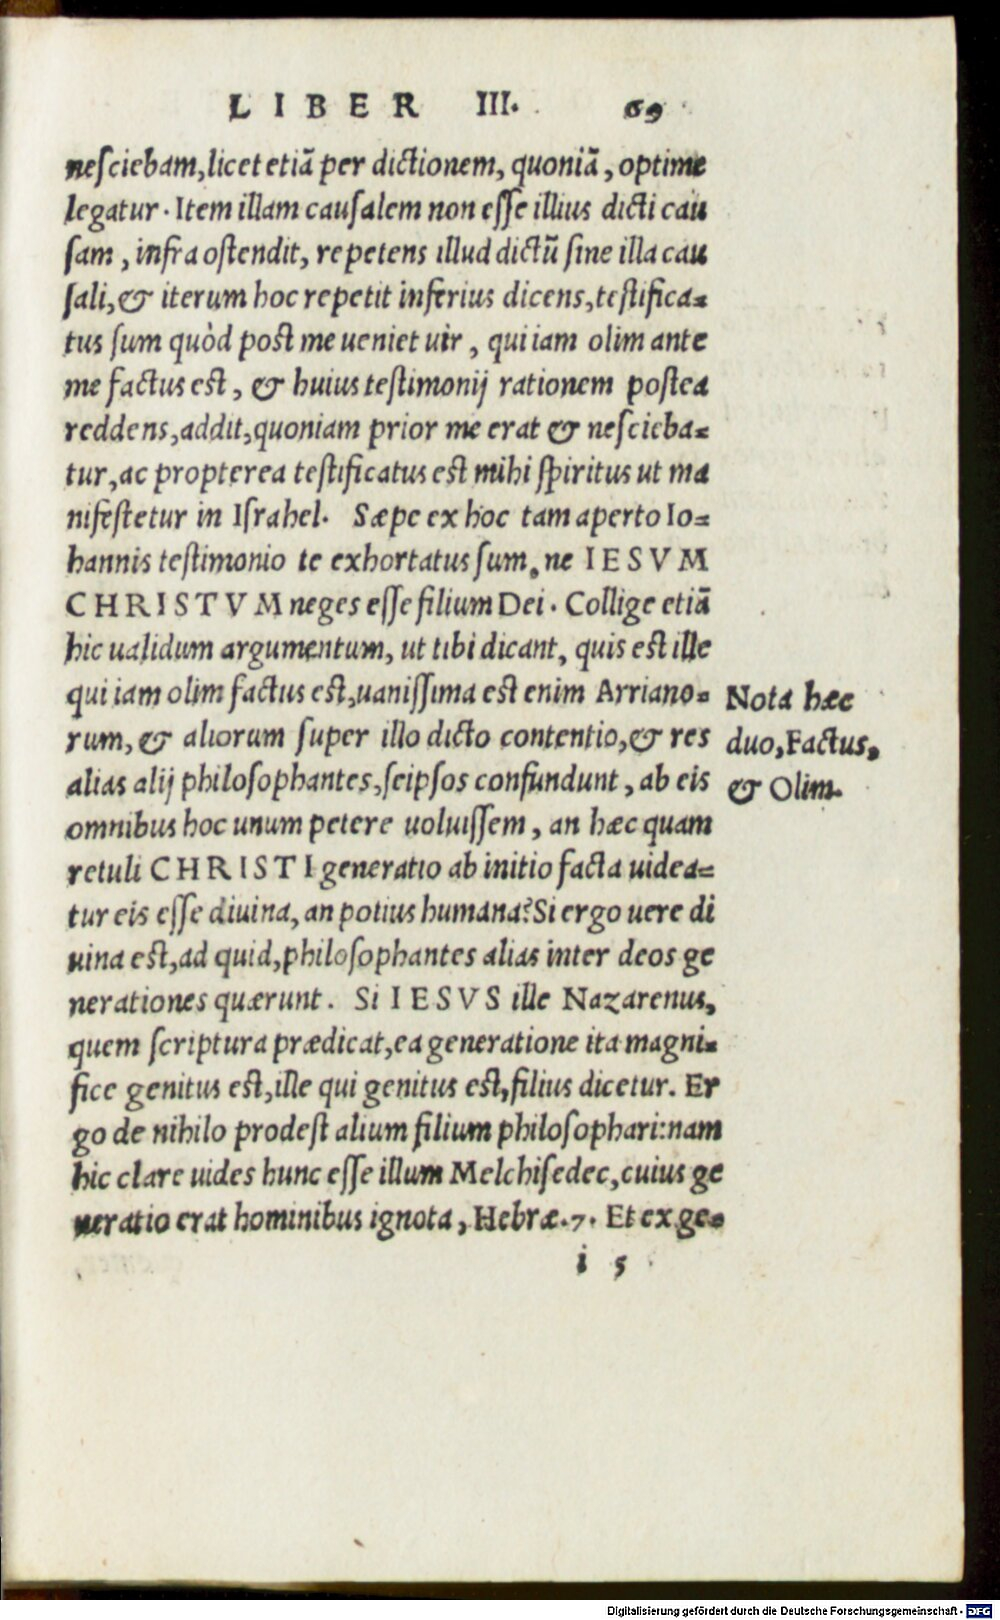 LIBER III. 69
nesciebam, licet etiã per dictionem, quoniã, optime
legatur. Item illam causalem non esse illius dicti cau
sam, infra ostendit, repetens illud dictũ sine illa cau
sali, & iterum hoc repetit inferius dicens, testifica=
tus sum quòd post me ueniet uir, qui iam olim ante
me factus est, & huius testimonij rationem postea
reddens, addit, quoniam prior me erat & nescieba=
tur, ac propterea testificatus est mihi spiritus ut ma
nifestetur in Israhel. Sæpe ex hoc tam aperto Io=
hannis testimonio te exhortatus sum, ne IESVM
CHRISTVM neges esse filium Dei. Collige etiã
hic ualidum argumentum, ut tibi dicant, quis est ille
qui iam olim factus est, uanissima est enim Arriano=
rum, & aliorum super illo dicto contentio, & res
alias alij philosophantes, seipsos confundunt, ab eis
omnibus hoc unum petere uoluissem, an hæc quam
retuli CHRISTI generatio ab initio facta uidea=
tur eis esse diuina, an potius humana? Si ergo uere di
uina est, ad quid, philosophantes alias inter deos ge
nerationes quærunt. Si IESVS ille Nazarenus,
quem scriptura prædicat, ea generatione ita magni=
fice genitus est, ille qui genitus est, filius dicetur. Er
go de nihilo prodest alium filium philosophari: nam
hic clare uides hunc esse illum Melchisedec, cuius ge
neratio erat hominibus ignota, Hebræ. 7. Et ex ge=
i 5
Nota hæc
duo, Factus,
& Olim.
Digitalisierung gefördert durch die Deutsche Forschungsgemeinschaft - DFG